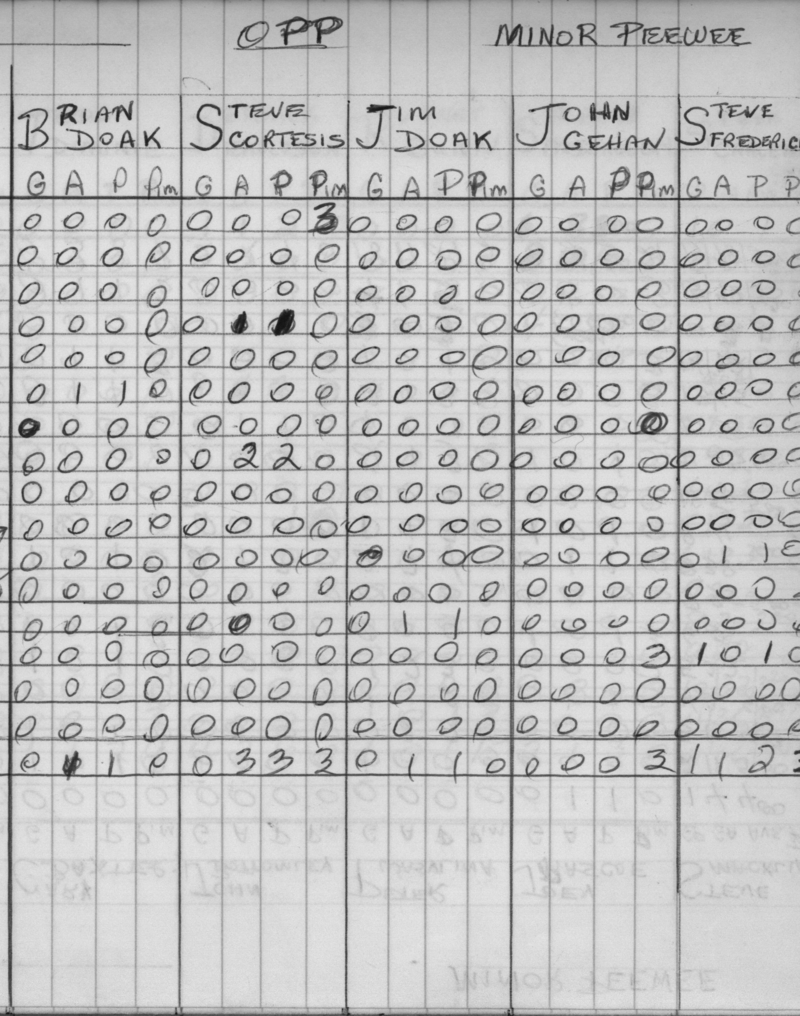 OPP MINOR PEEWEE
BRIAN DOAK STEVE CORTESIS JIM DOAK JOHN GEHAN STEVE FREDERIC
G A P Pim G A P Pim G A P Pim G A P Pim G A P P
0 0 0 0 0 0 0 3 0 0 0 0 0 0 0 0 0 0 0 0
0 0 0 0 0 0 0 0 0 0 0 0 0 0 0 0 0 0 0 0
0 0 0 0 0 0 0 0 0 0 0 0 0 0 0 0 0 0 0
0 0 0 0 0 1 1 0 0 0 0 0 0 0 0 0 0 0 0 0
0 0 0 0 0 0 0 0 0 0 0 0 0 0 0 0 0 0 0 0
0 1 1 0 0 0 0 0 0 0 0 0 0 0 0 0 0 0 0 0
0 0 0 0 0 0 0 0 0 0 0 0 0 0 0 0 0 0 0 0
0 0 0 0 0 2 2 0 0 0 0 0 0 0 0 0 0 0 0 0
0 0 0 0 0 0 0 0 0 0 0 0 0 0 0 0 0 0 0 0
0 0 0 0 0 0 0 0 0 0 0 0 0 0 0 0 0 0 0 0
0 0 0 0 0 0 0 0 0 0 0 0 0 0 0 0 0 1 1 0
0 0 0 0 0 0 0 0 0 0 0 0 0 0 0 0 0 0 0
0 0 0 0 0 0 0 0 0 1 1 0 0 0 0 0 0 0 0
0 0 0 0 0 0 0 0 0 0 0 0 0 0 0 3 1 0 1 0
0 0 0 0 0 0 0 0 0 0 0 0 0 0 0 0 0 0 0 0
0 0 0 0 0 0 0 0 0 0 0 0 0 0 0 0 0 0 0 0
0 1 1 0 0 3 3 3 0 1 1 0 0 0 0 3 1 1 2 3